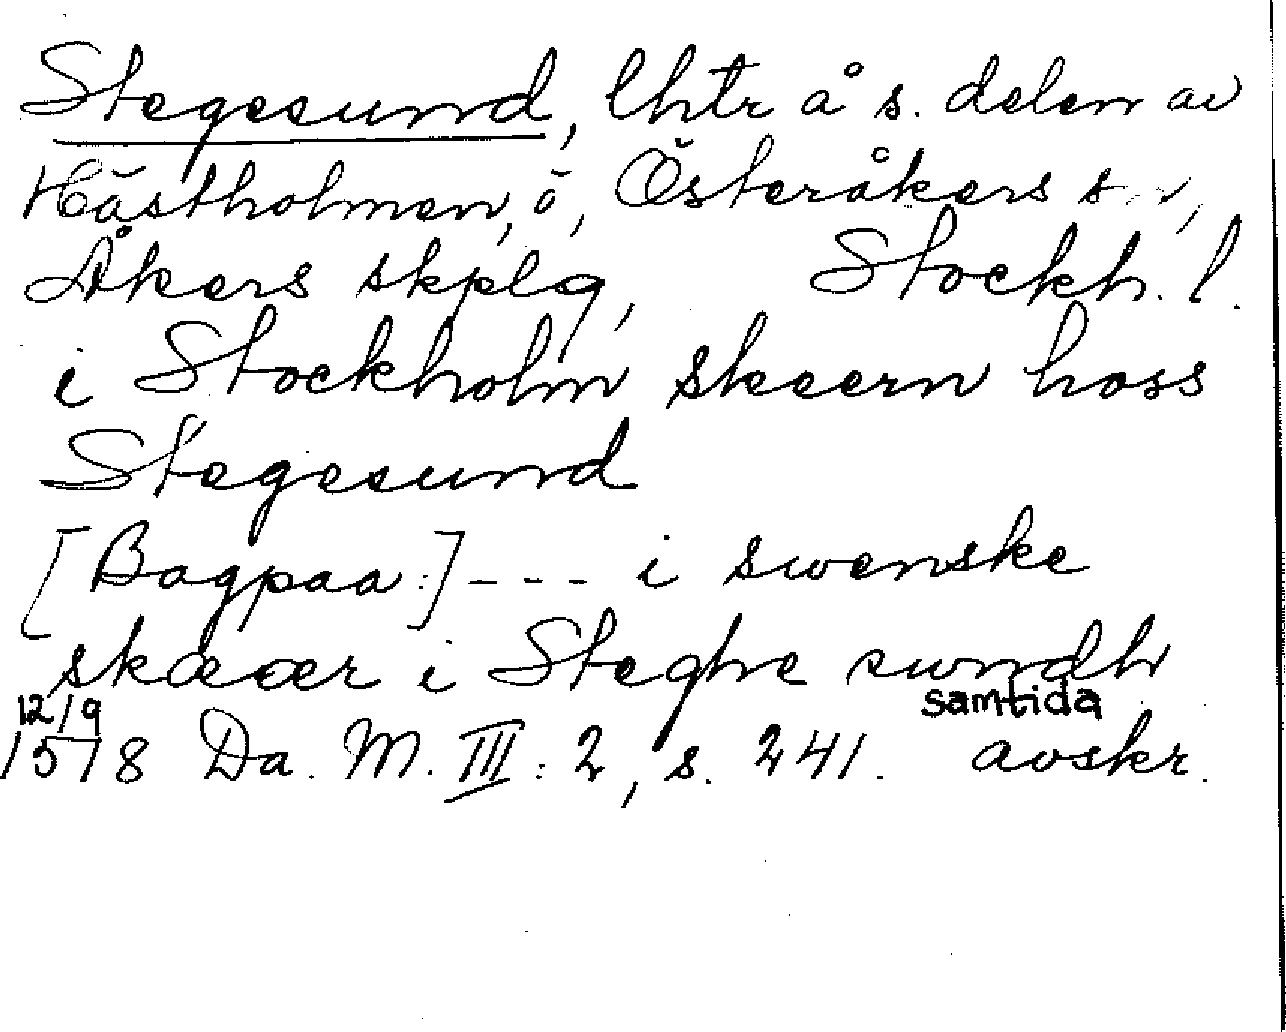 Stegesund, lhtr å s. delen av
Hästholmen, ö, Österåkers sn,
Åkers skplg, Stockh. l.
i Stockholm skeern hoss
Stegesund
[Bagpaa:] --- i swenske
skæær i Steghe swndh
12/9 samtida
1518 Da. M. III: 2, s. 241. avskr.